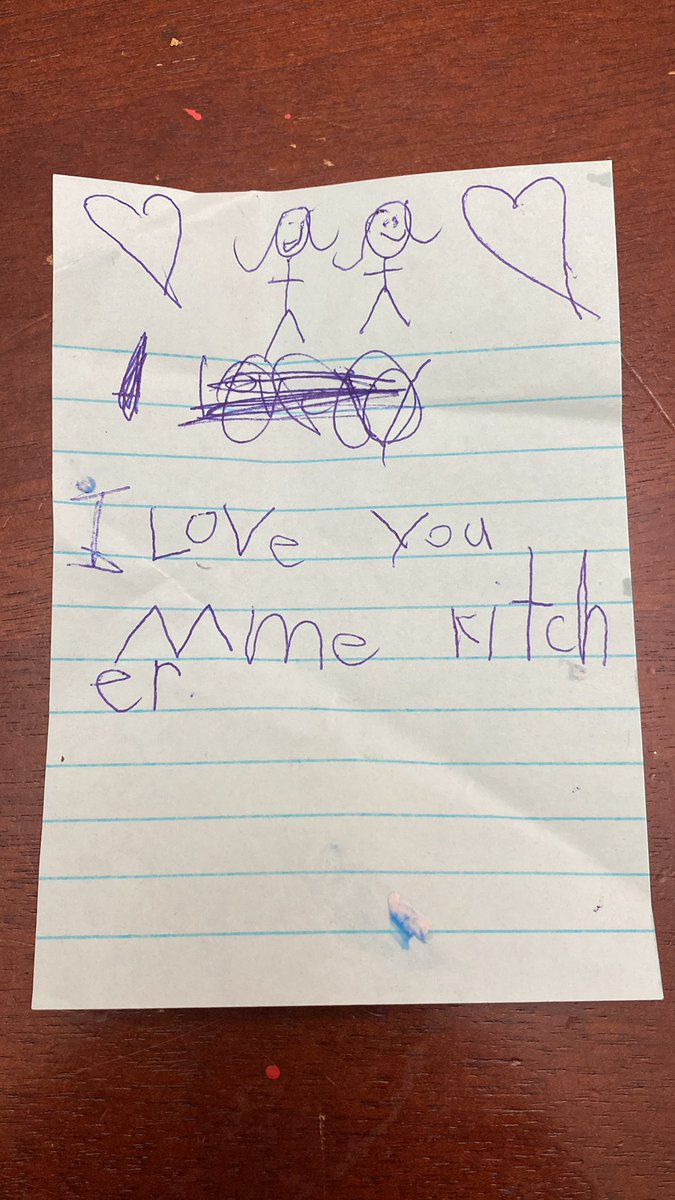 I Love you
Mme kitch
er.